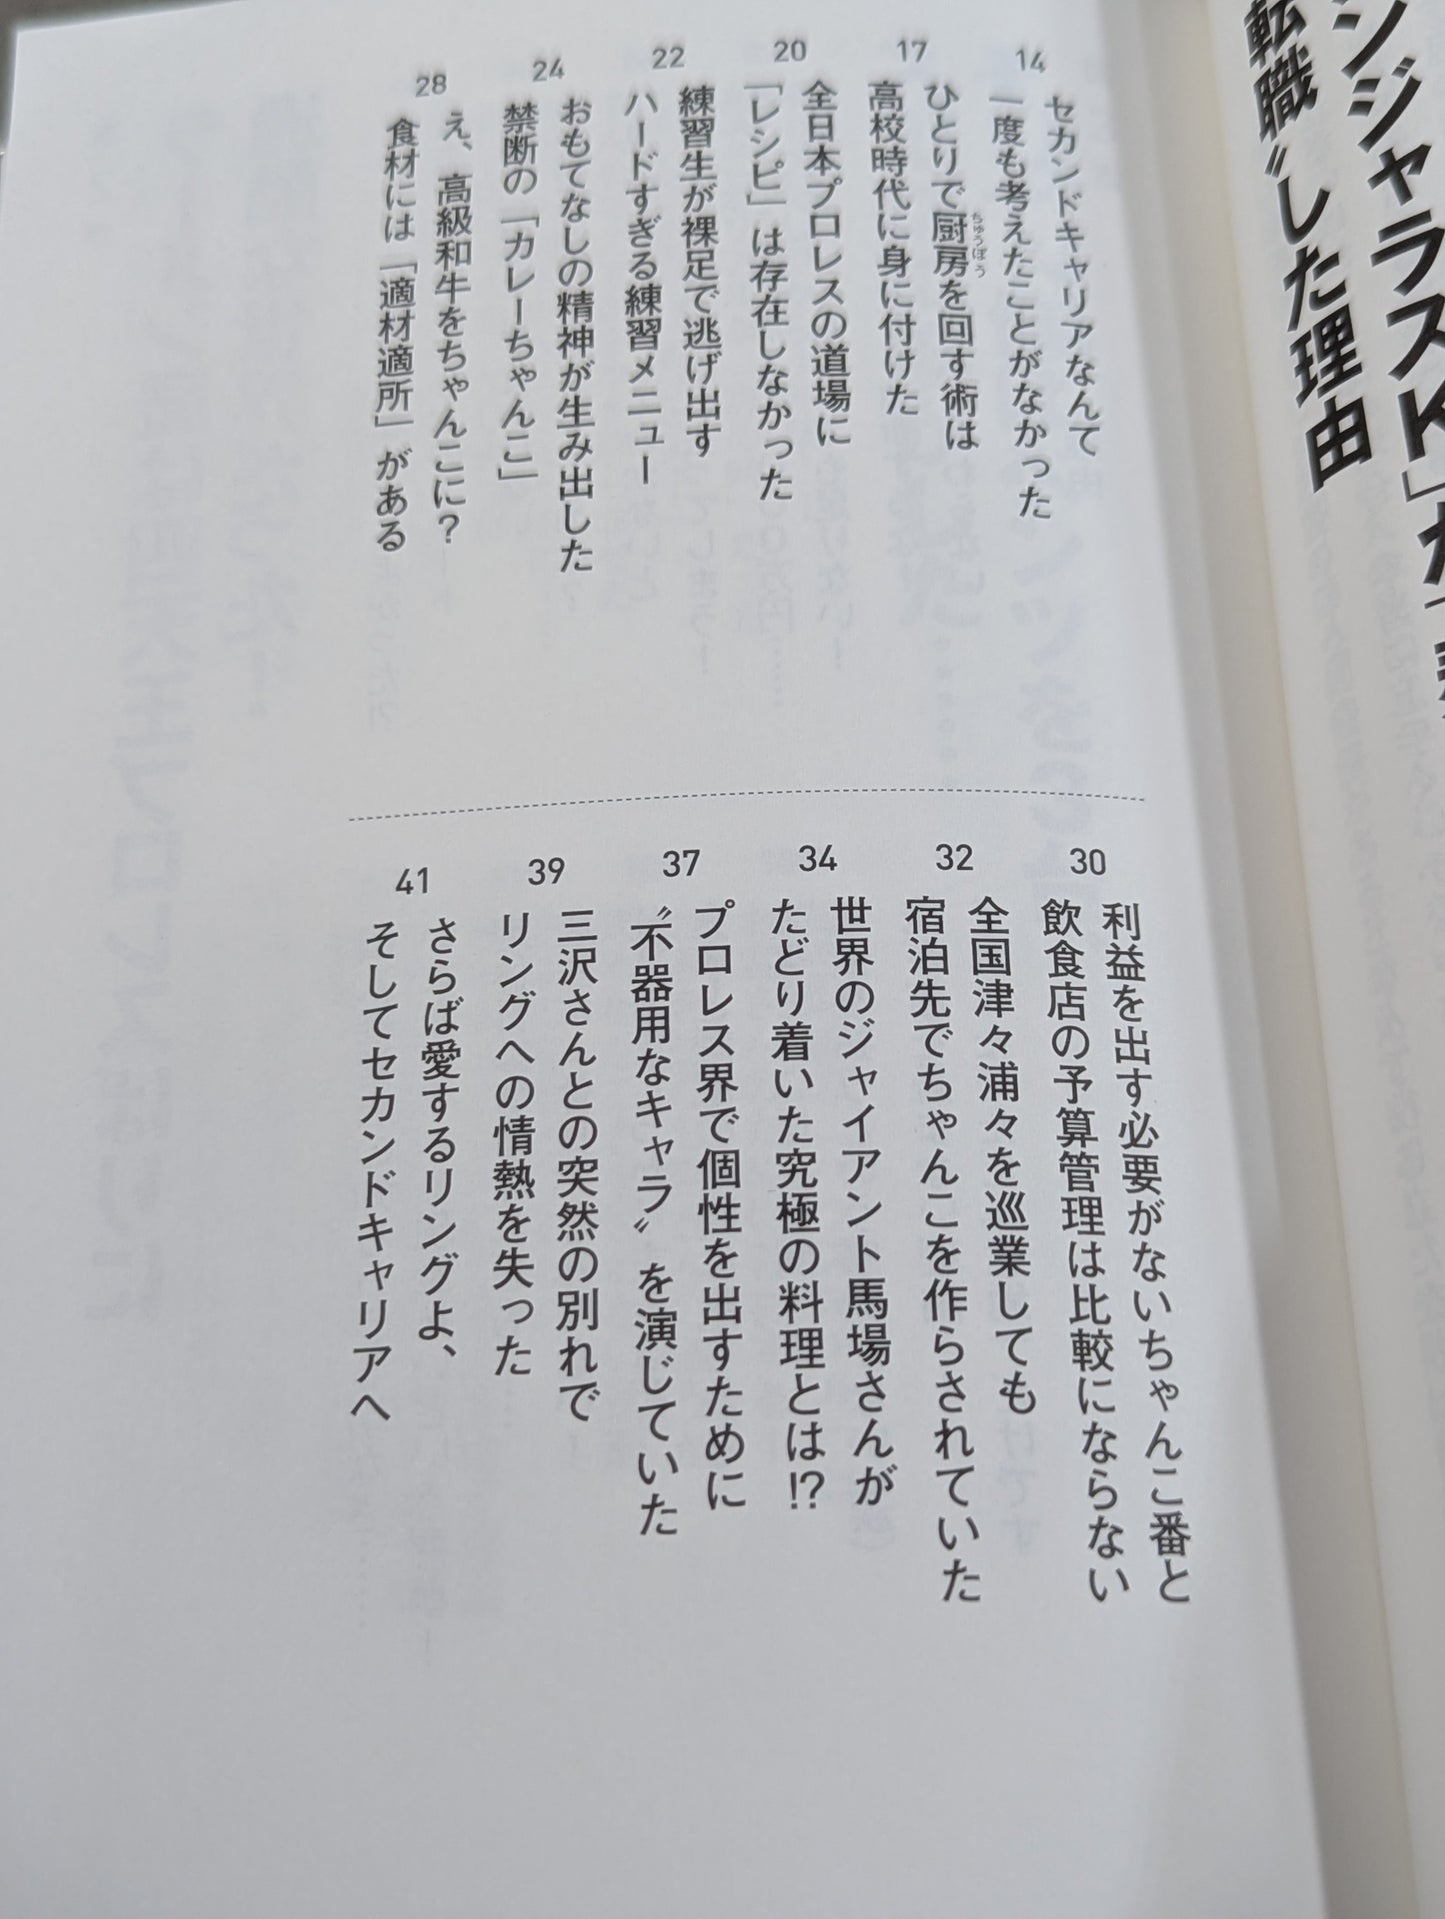 ンジャラスK」が
転職〟した理由
14
セカンドキャリアなんて
一度も考えたことがなかった
17
ひとりで厨房を回す術は
ちゅうぼう
高校時代に身に付けた
20
全日本プロレスの道場に
「レシピ」は存在しなかった
22
練習生が裸足で逃げ出す
ハードすぎる練習メニュー
24
おもてなしの精神が生み出した
禁断の「カレーちゃんこ」
28
え、高級和牛をちゃんこに?
食材には「適材適所」がある
30
利益を出す必要がないちゃんこ番と
飲食店の予算管理は比較にならない
32
全国津々浦々を巡業しても
宿泊先でちゃんこを作らされていた
34
世界のジャイアント馬場さんが
たどり着いた究極の料理とは!?
37
プロレス界で個性を出すために
〝不器用なキャラ〟を演じていた
39
三沢さんとの突然の別れで
リングへの情熱を失った
41
さらば愛するリングよ、
そしてセカンドキャリアへ